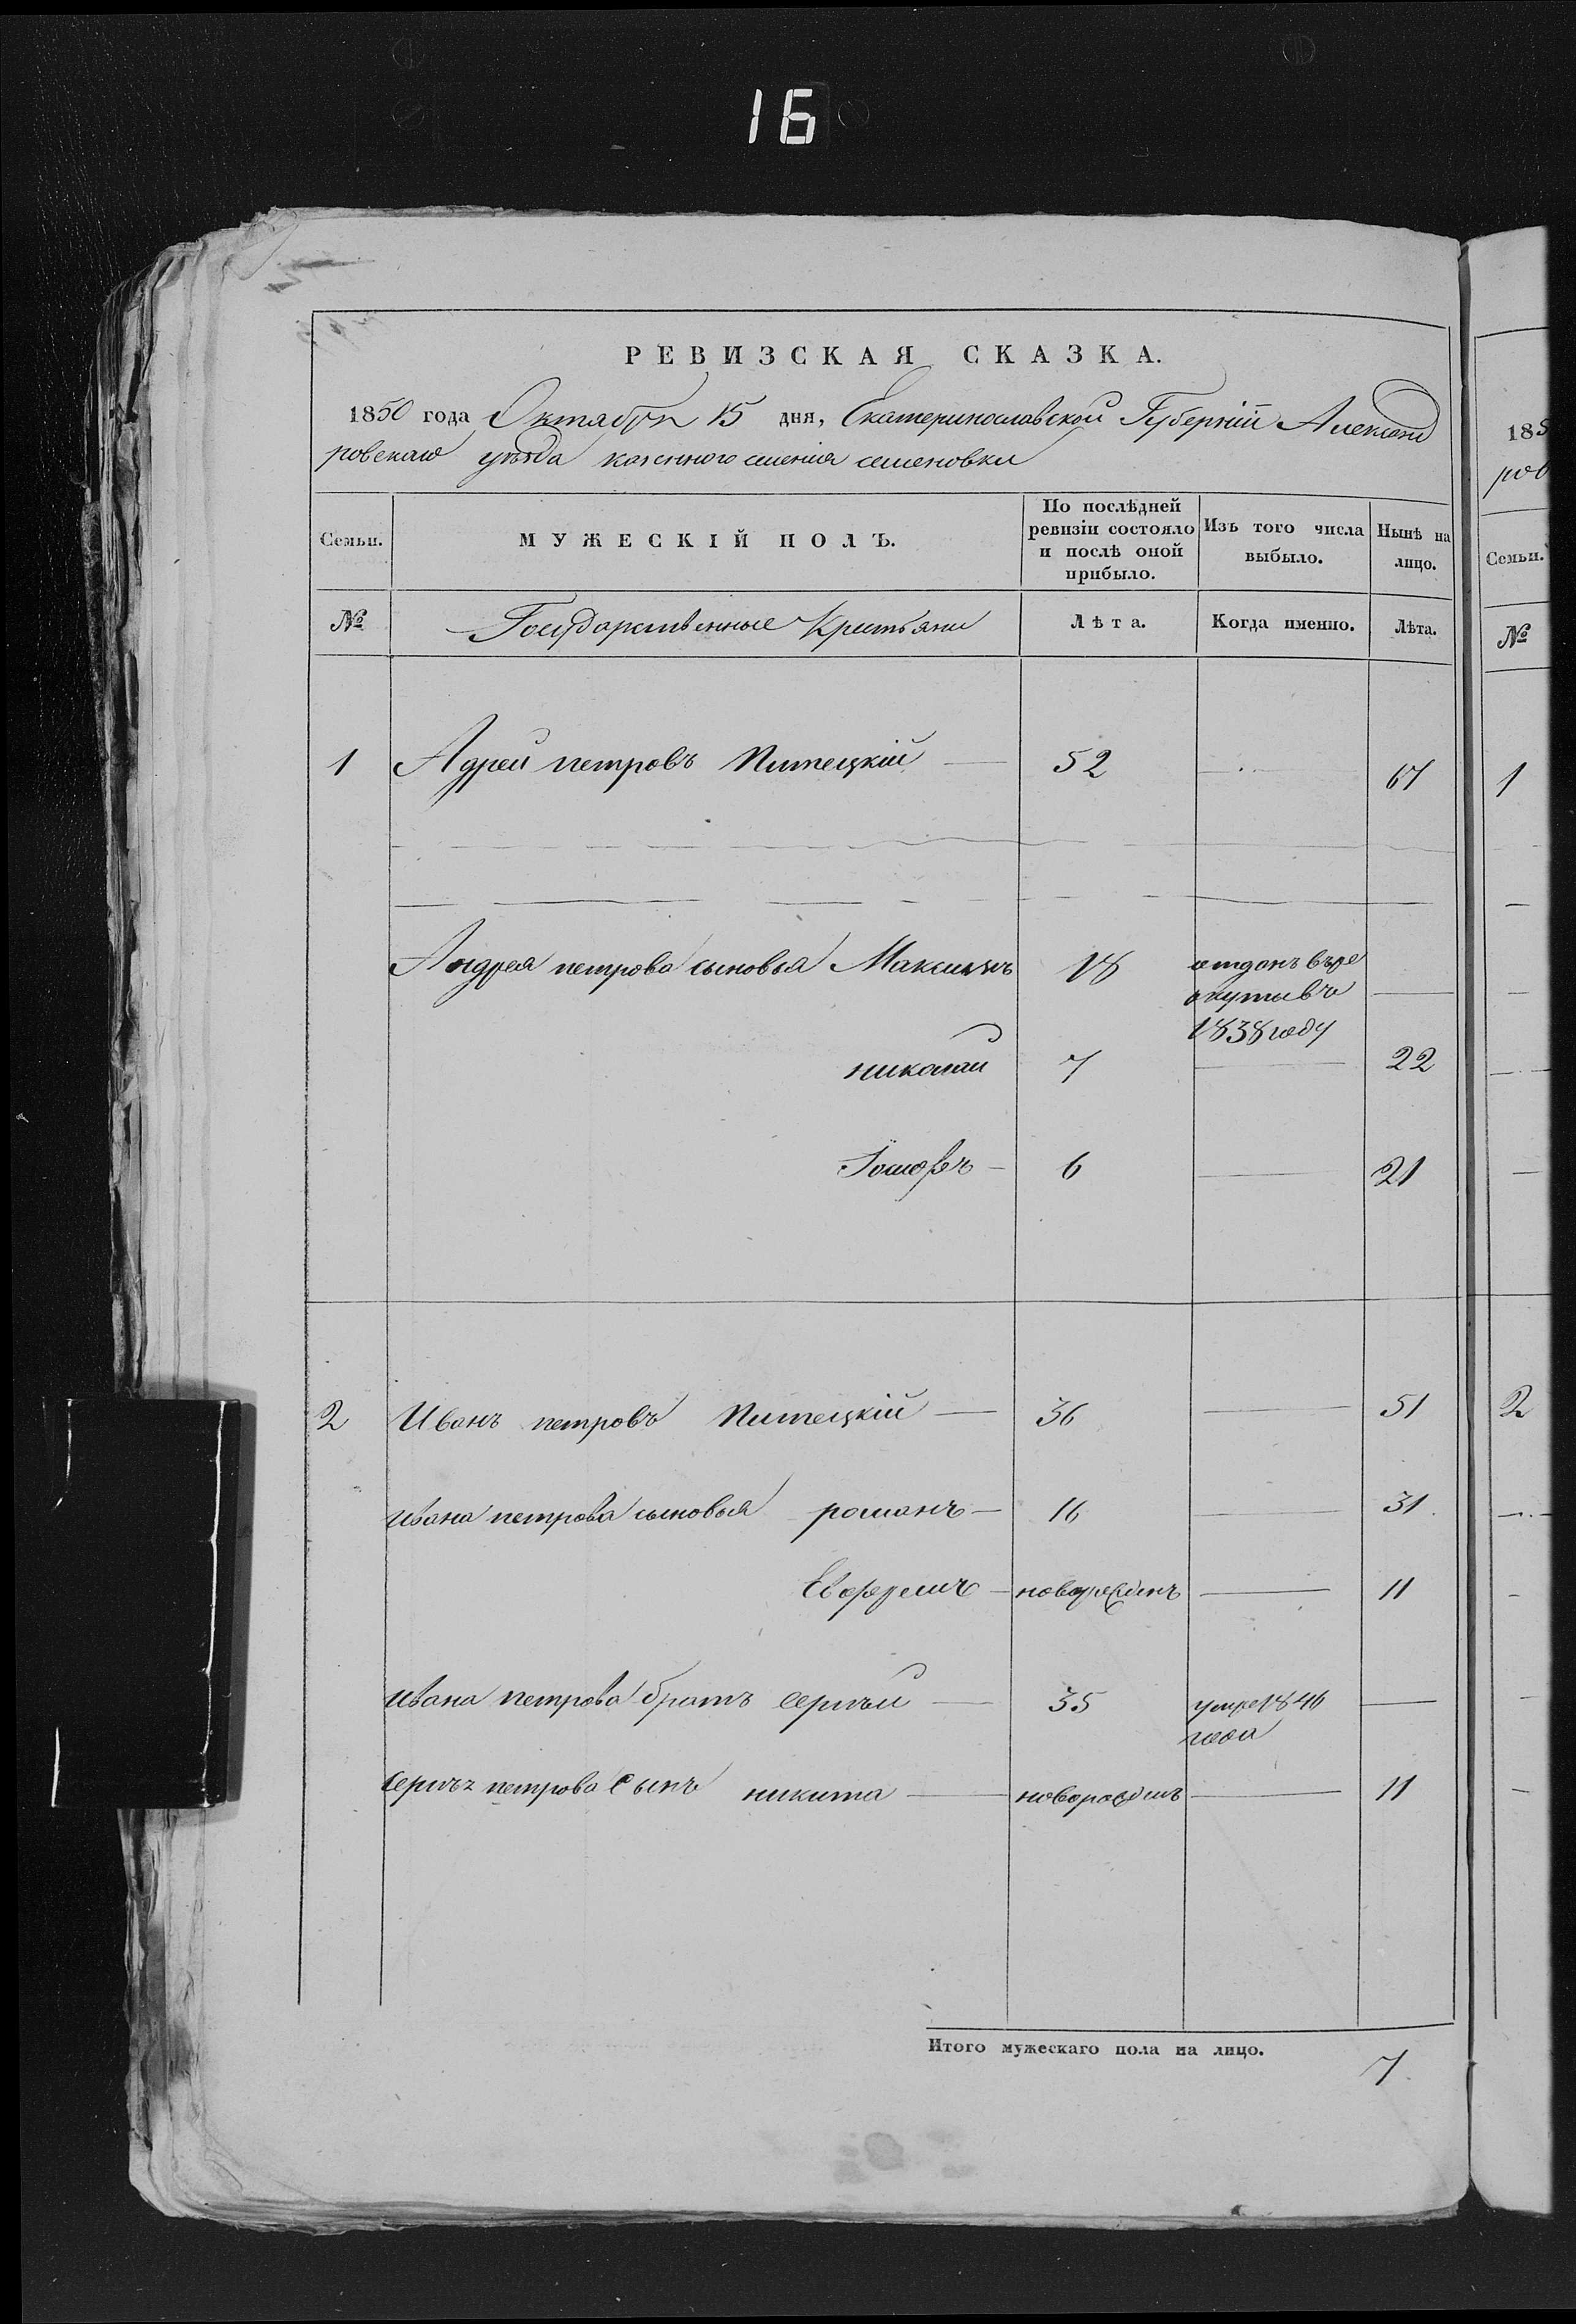 16
РЕВИЗСКАЯ СКАЗКА.
1850 года Октября 15 дня, Екатеринославской Губерніи Александ
ровскаго уѣзда казенного селенія семеновки
Семьи. МУЖЕСКІЙ ПОЛЪ. По послѣдней ревизіи состояло и послѣ оной прибыло. Изъ того числа выбыло. Нынѣ на лицо.
№ Государственные Крестьяни Лѣта. Когда именно. Лѣта.
1 Адрей петровъ Питецкій 52 67
Андрея петрова сыновья Максимъ 18 отданъ въре
круты въ
1838 году
николай 7 22
Іосифъ 6 21
2 Иванъ петровъ Питецкій 36 51
ивана петрова сыновья романъ 16 31
новорожденъ 11
ивана петрова братъ сергѣй 35 умре 1846
года
петрова сынъ никита новорожденъ 11
Итого мужескаго пола на лицо. 7
185
ров
Семьи.
№
1
2